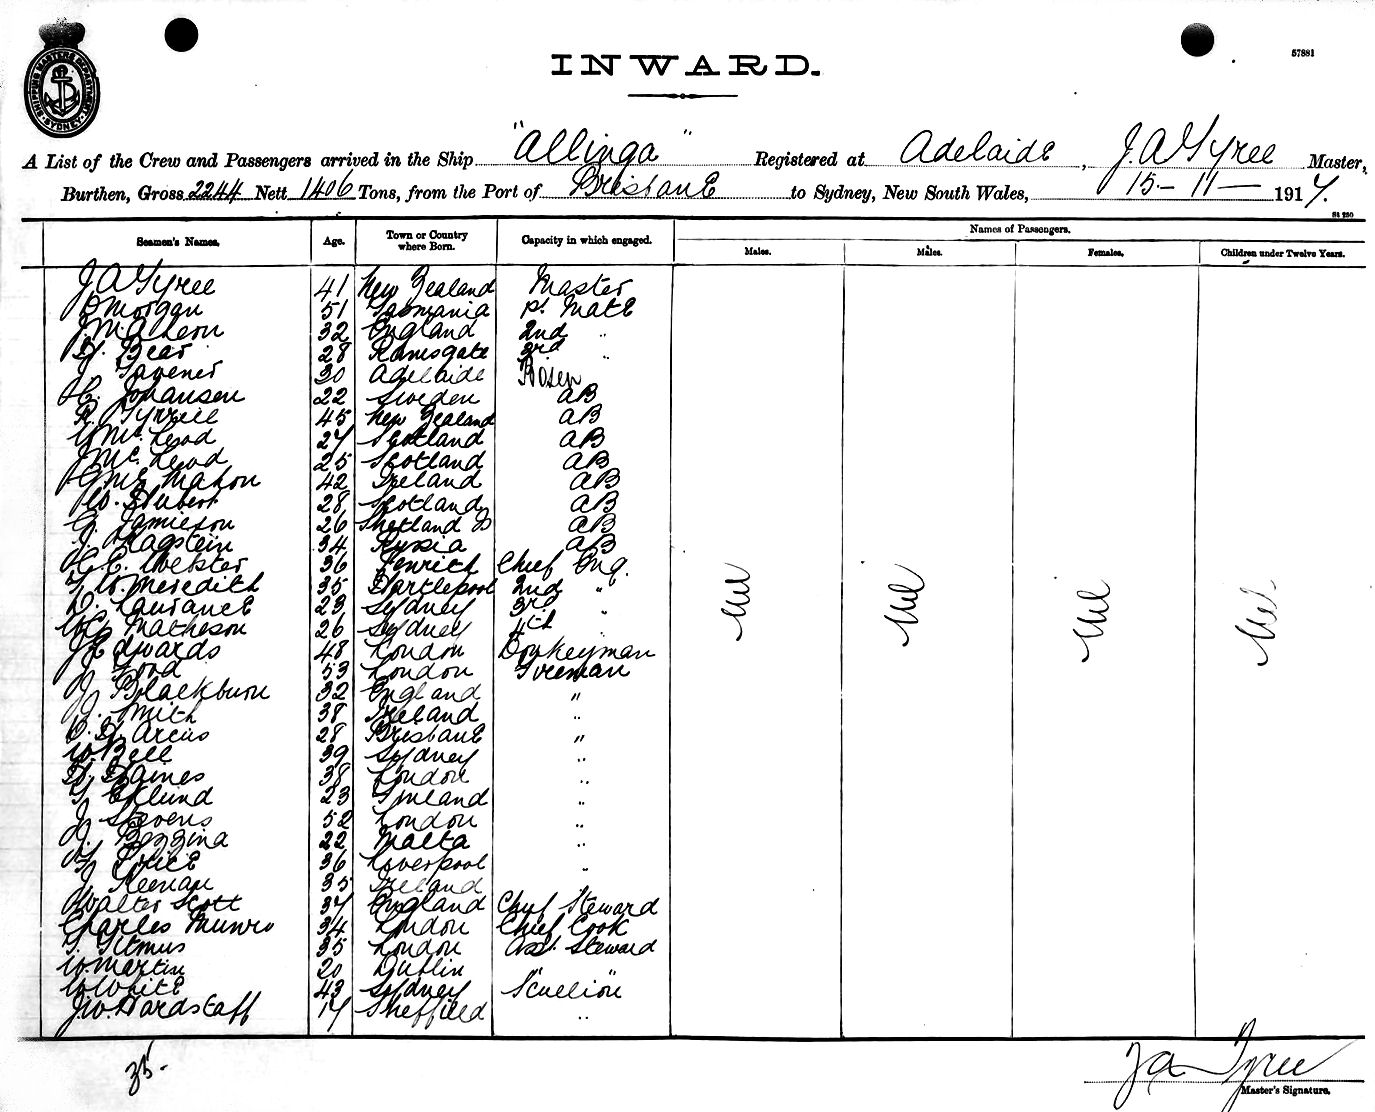 57881
SHIPPING MASTERS DEPARTMENT SYDNEY
INWARD.
A List of the Crew and Passengers arrived in the Ship "Allinga" Registered at Adelaide, J. A. Tyree Master,
Burthen, Gross 2244 Nett 1406 Tons, from the Port of Brisbane to Sydney, New South Wales, 15-11- 1917.
Seamen's Names. Age. Town or Country where Born. Capacity in which engaged. Names of Passengers.
Males. Males. Females. Children under Twelve Years.
J A Tyree 41 New Zealand Master
D Morgan 51 Tasmania Mate
32 England 2nd "
Bear 28 Ramsgate 3rd "
J. Tavener 30 Adelaide Bosun
C. Johansen 22 Sweden AB
R. Tyrrell 45 New Zealand AB
Mc. Leod 27 Scotland AB
J Mc. Leod 25 Scotland AB
Mc Mahon 42 Ireland AB
Hubert 28 Scotland AB
G. Jamieson 26 Shetland Is AB
J. Kagstein 34 Russia AB
C. Webster 36 Penrith Chief Eng.
Meredith 35 Hartlepool 2nd "
D. Laurance 23 Sydney 3rd "
Matheson 26 Sydney 4th "
J Edwards 48 London Donkeyman
J. Ford 53 London Fireman
J. Blackburn 32 England "
J. Smith 38 Ireland "
Arcus 28 Brisbane "
W. Bell 39 Sydney "
H. Haines 38 London "
Eklund 23 Finland "
J. Stevens 52 London "
J. Bezzina 22 Malta "
Price 36 Liverpool "
J Keenan 35 Ireland "
Walter Scott 37 England Chief Steward
Charles Munro 34 London Chief Cook
Titmus 35 London Asst. Steward
W. Martin 20 Dublin " "
W White 43 Sydney Scullion
J. W. Hardstaff 17 Sheffield "
Nil Nil Nil Nil
35-
J A Tyree
Master's Signature.